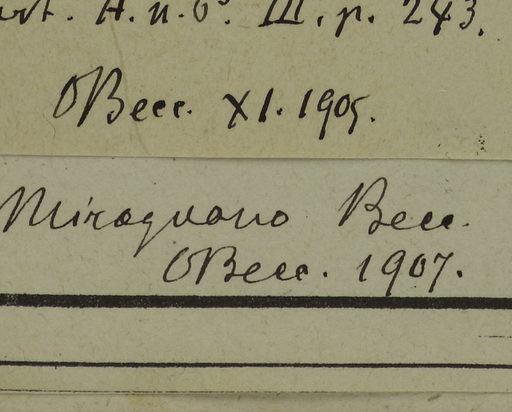 H. n. 6º. III. p. 243.
OBecc. XI. 1905.
Miraguano Becc.
OBecc. 1907.